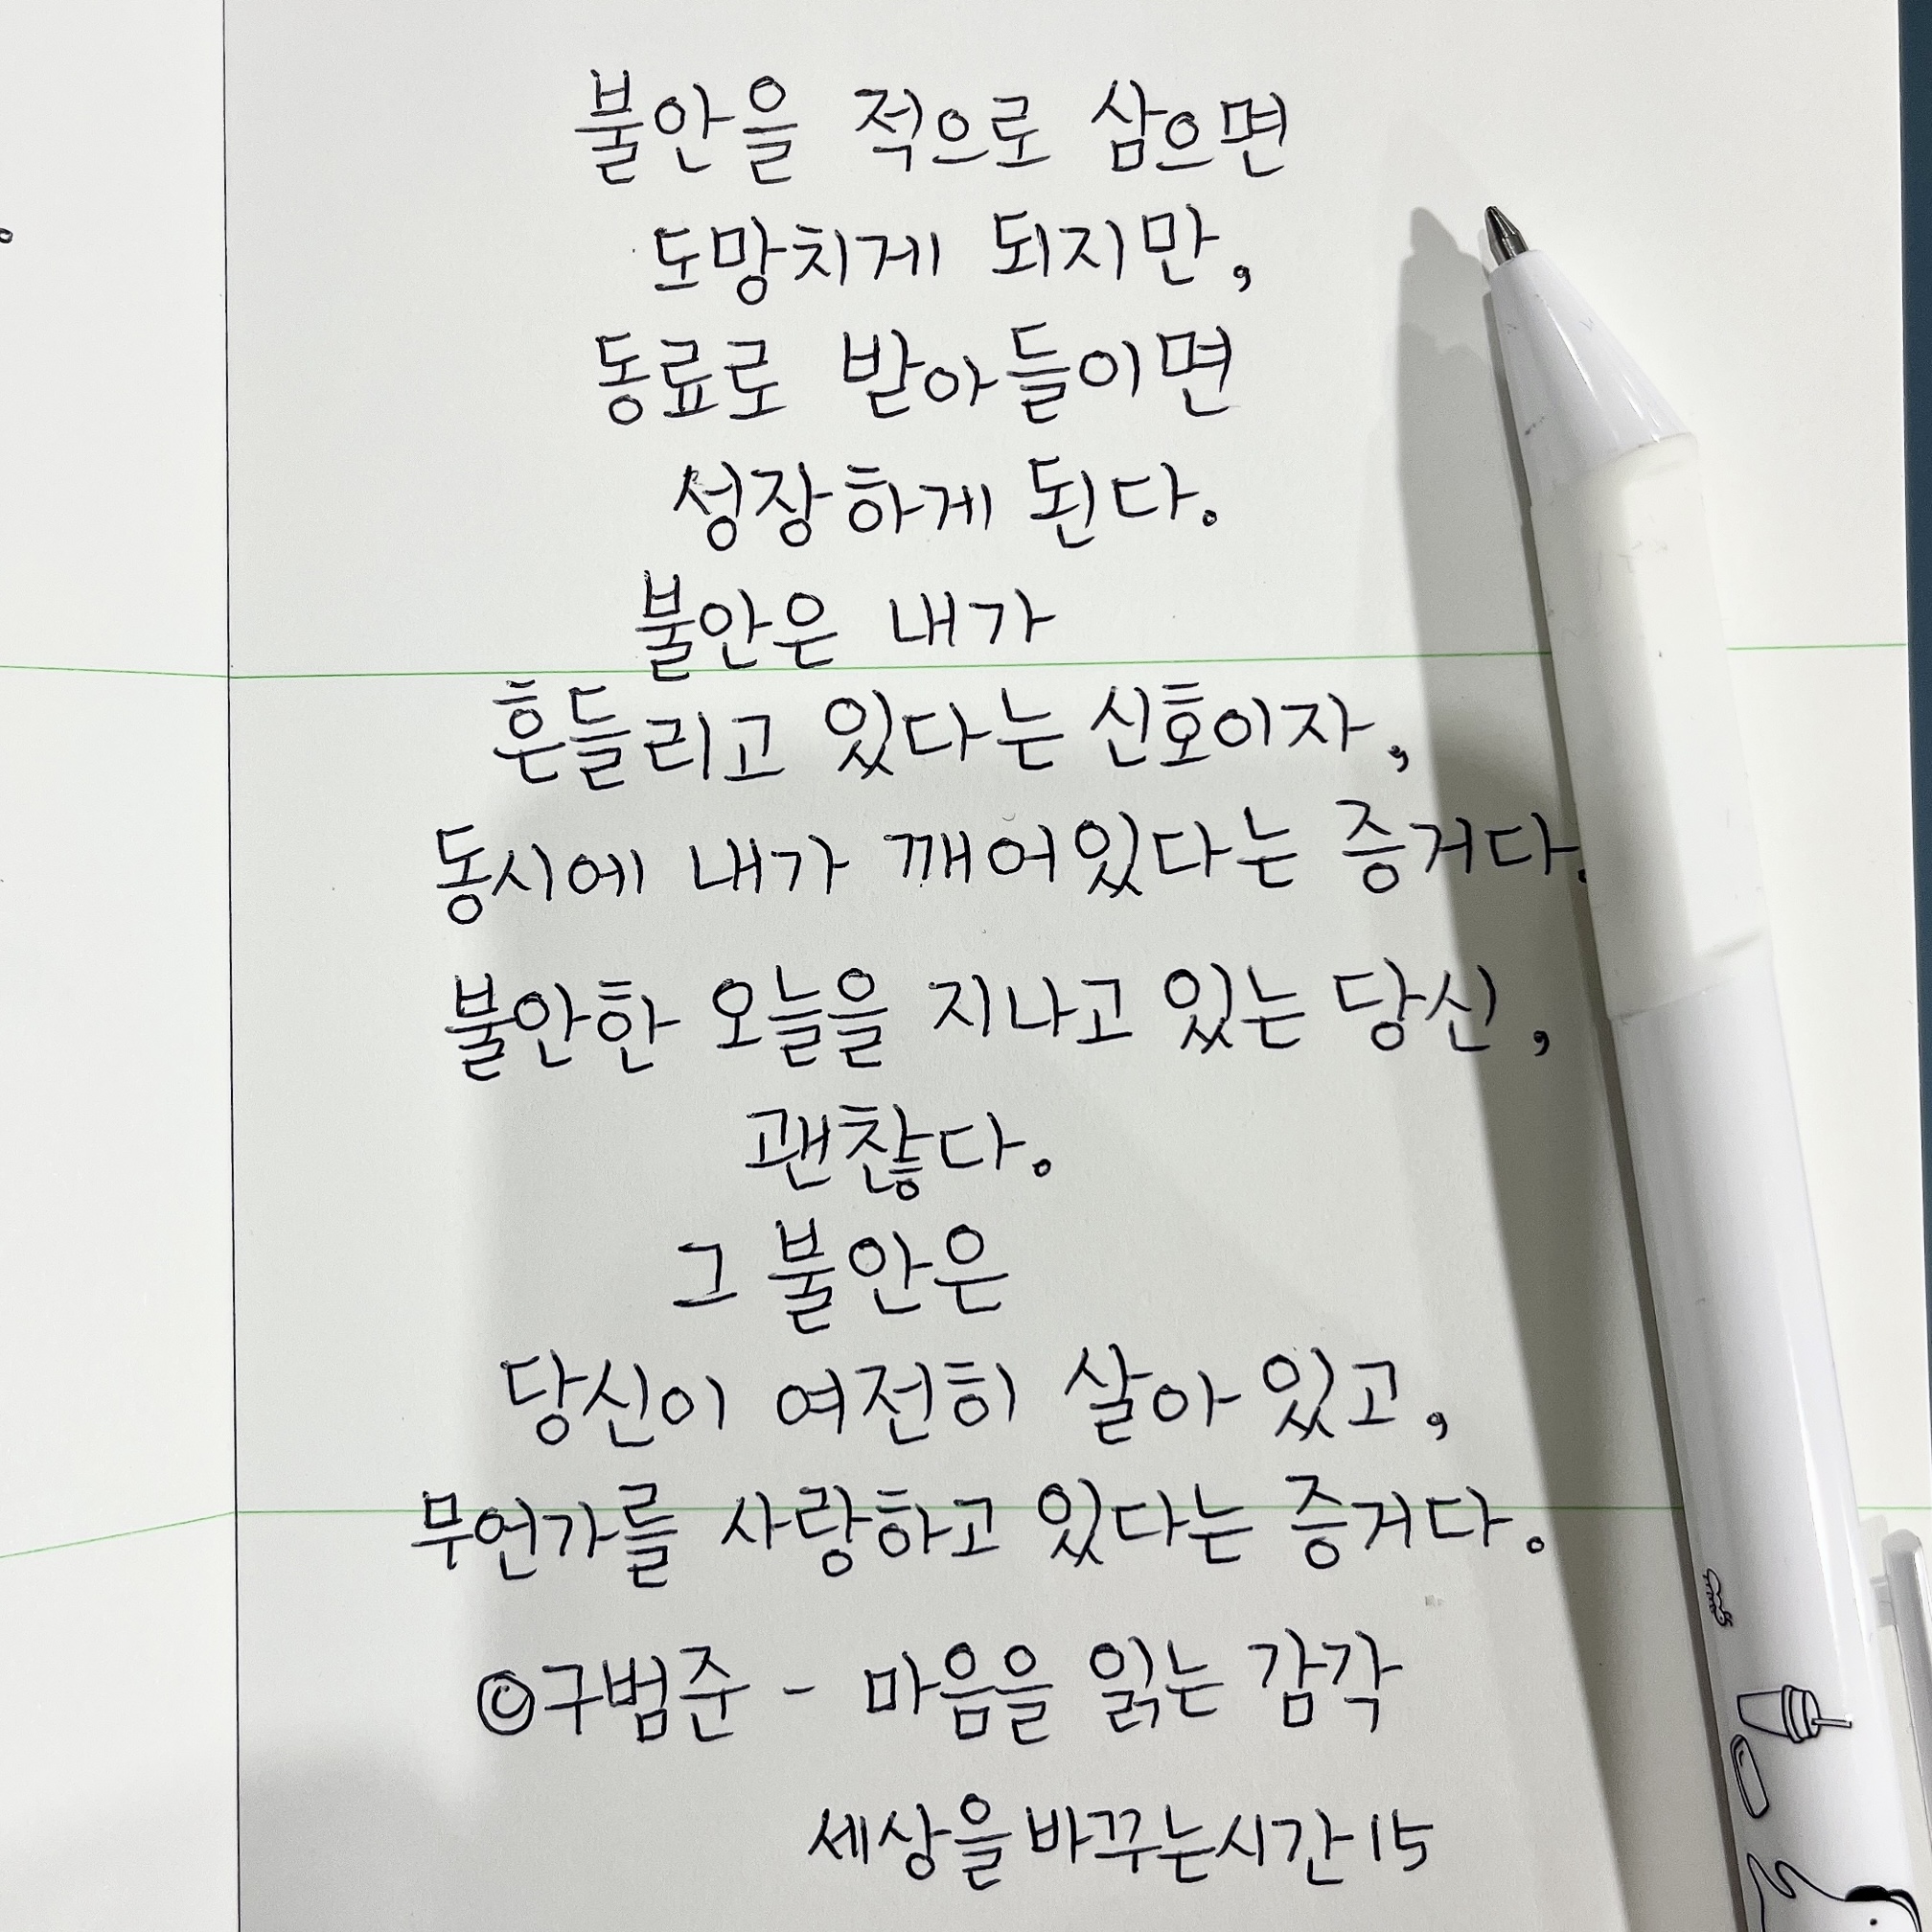 불안을 적으로 삼으면
도망치게 되지만,
동료로 받아들이면
성장하게 된다.
불안은 내가
흔들리고 있다는 신호이자,
동시에 내가 깨어있다는 증거다.
불안한 오늘을 지나고 있는 당신,
괜찮다.
그 불안은
당신이 여전히 살아 있고,
무언가를 사랑하고 있다는 증거다.
©구범준 - 마음을 읽는 감각
세상을바꾸는시간15